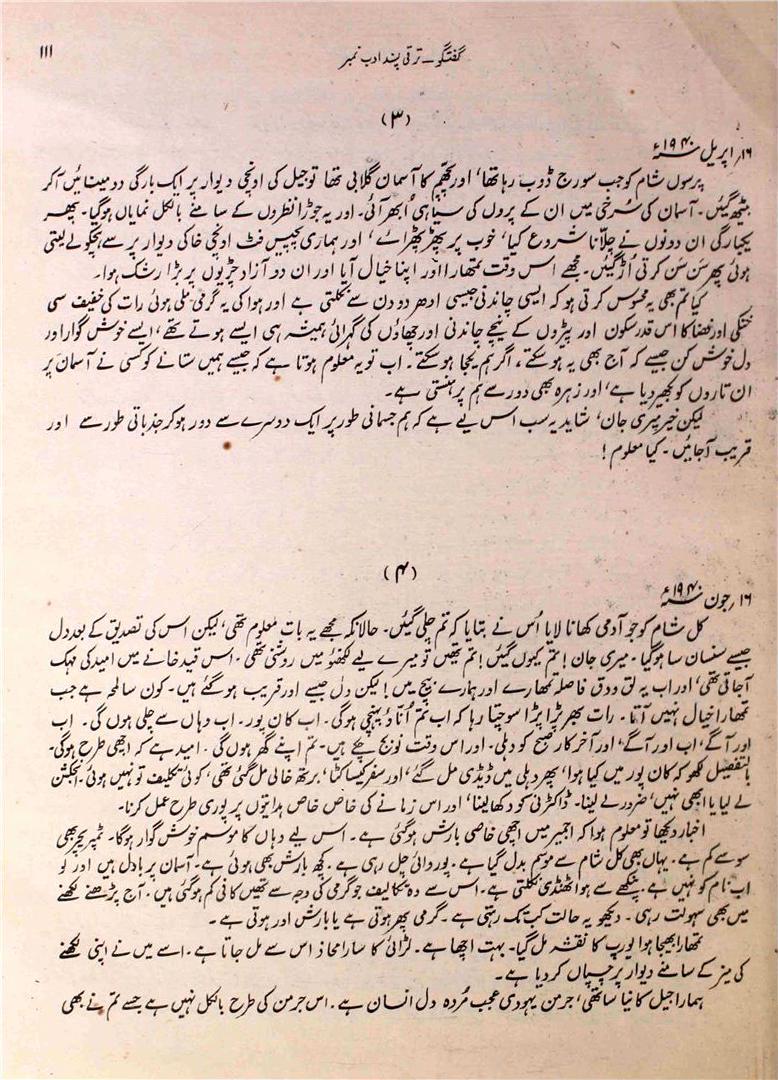 گفتگو ۔ ترقی پسند ادب نمبر
۱۱۱
(۳)
۱۶؍ اپریل سنہ ۱۹۴۰ء
پرسوں شام کو جب سورج ڈوب رہا تھا، اور پچھم کا آسمان گلابی تھا تو جیل کی اونچی دیوار پر ایک بارگی دو مینائیں آکر
بیٹھ گئیں۔ آسمان کی سُرخی میں ان کے پروں کی سیاہی اُبھر آئی۔ اور یہ جوڑا نظروں کے سامنے بالکل نمایاں ہوگیا۔ پھر
یکبارگی ان دونوں نے چلّانا شروع کیا، خوب پر پھڑپھڑائے، اور ہماری پچیس فٹ اونچی خاکی دیوار پر سے ہچکولے لیتی
ہوئی پھر سَن سَن کرتی اُڑ گئیں۔ مجھے اس وقت تمھارا اور اپنا خیال آیا اور ان دو آزاد چڑیوں پر بڑا رشک ہوا۔
کیا تم بھی یہ محسوس کرتی ہو کہ ایسی چاندنی جیسی ادھر دو دن سے نکلتی ہے اور ہوا کی یہ گرمی ملی ہوئی رات کی خفیف سی
خنکی اور فضا کا اس قدر سکون اور پیڑوں کے نیچے چاندنی اور چھاؤں کی گہرائی ہمیشہ ہی ایسے ہوتے تھے، ایسے خوش گوار اور
دل خوش کن جیسے کہ آج بھی یہ ہوسکتے، اگر ہم یکجا ہوسکتے۔ اب تو یہ معلوم ہوتا ہے کہ جیسے ہمیں ستانے کو کسی نے آسمان پر
ان تاروں کو بکھیر دیا ہے، اور زہرہ بھی دور سے ہم پر ہنستی ہے۔
لیکن خیر میری جان، شاید یہ سب اس لیے ہے کہ ہم جسمانی طور پر ایک دوسرے سے دور ہوکر جذباتی طور سے اور
قریب آجائیں۔ کیا معلوم!
(۴)
۱۶؍ جون سنہ ۱۹۴۰ء
کل شام کو جو آدمی کھانا لایا اُس نے بتایا کہ تم چلی گئیں۔ حالانکہ مجھے یہ بات معلوم تھی، لیکن اس کی تصدیق کے بعد دل
جیسے سنسان سا ہوگیا۔ میری جان! تم کیوں گئیں! تم تھیں تو میرے لیے لکھنؤ میں روشنی تھی۔ اس قید خانے میں امید کی مہک
آجاتی تھی، اور اب یہ لق و دق فاصلہ تمھارے اور ہمارے بیچ میں! لیکن دل جیسے اور قریب ہوگئے ہیں۔ کون سا لمحہ ہے جب
تمھارا خیال نہیں آتا۔ رات بھر پڑا پڑا سوچتا رہا کہ اب تم اُنّاؤ پہنچی ہوگی۔ اب کان پور۔ اب وہاں سے چلی ہوں گی۔ اب
اور آگے، اب اور آگے، اور آخرکار صبح کو دہلی۔ اور اس وقت نو بج چکے ہیں۔ تم اپنے گھر ہوں گی۔ امید ہے کہ اچھی طرح ہوگی۔
بالتفصیل لکھو کہ کان پور میں کیا ہوا، پھر دہلی میں ڈیڈی مل گئے، اور سفر کیسا کٹا، برتھ خالی مل گئی تھی، کوئی تکلیف تو نہیں ہوئی۔ انجکشن
لے لیا یا ابھی نہیں، ضرور لے لینا۔ ڈاکٹرنی کو دکھا لینا، اور اس زمانے کی خاص خاص ہدایتوں پر پوری طرح عمل کرنا۔
اخبار دیکھا تو معلوم ہوا کہ اجمیر میں اچھی خاصی بارش ہوگئی ہے۔ اس لیے وہاں کا موسم خوش گوار ہوگا۔ ٹمپریچر بھی
سو سے کم ہے۔ یہاں بھی کل شام سے موسم بدل گیا ہے۔ پوروائی چل رہی ہے۔ کچھ بارش بھی ہوئی ہے۔ آسمان پر بادل ہیں اور لو
اب نام کو نہیں ہے۔ پنکھے سے ہوا ٹھنڈی نکلتی ہے۔ اس سے وہ تکالیف جو گرمی کی وجہ سے تھیں کافی کم ہوگئی ہیں۔ آج پڑھنے لکھنے
میں بھی سہولت رہی۔ دیکھو یہ حالت کب تک رہتی ہے۔ گرمی پھر ہوتی ہے یا بارش اور ہوتی ہے۔
تمھارا بھیجا ہوا یورپ کا نقشہ مل گیا۔ بہت اچھا ہے۔ لڑائی کا سارا محاذ اس سے مل جاتا ہے۔ اسے میں نے اپنی لکھنے
کی میز کے سامنے دیوار پر چسپاں کر دیا ہے۔
ہمارا جیل کا نیا ساتھی، جرمن یہودی عجب مُردہ دل انسان ہے۔ اس جرمن کی طرح بالکل نہیں ہے جسے تم نے بھی